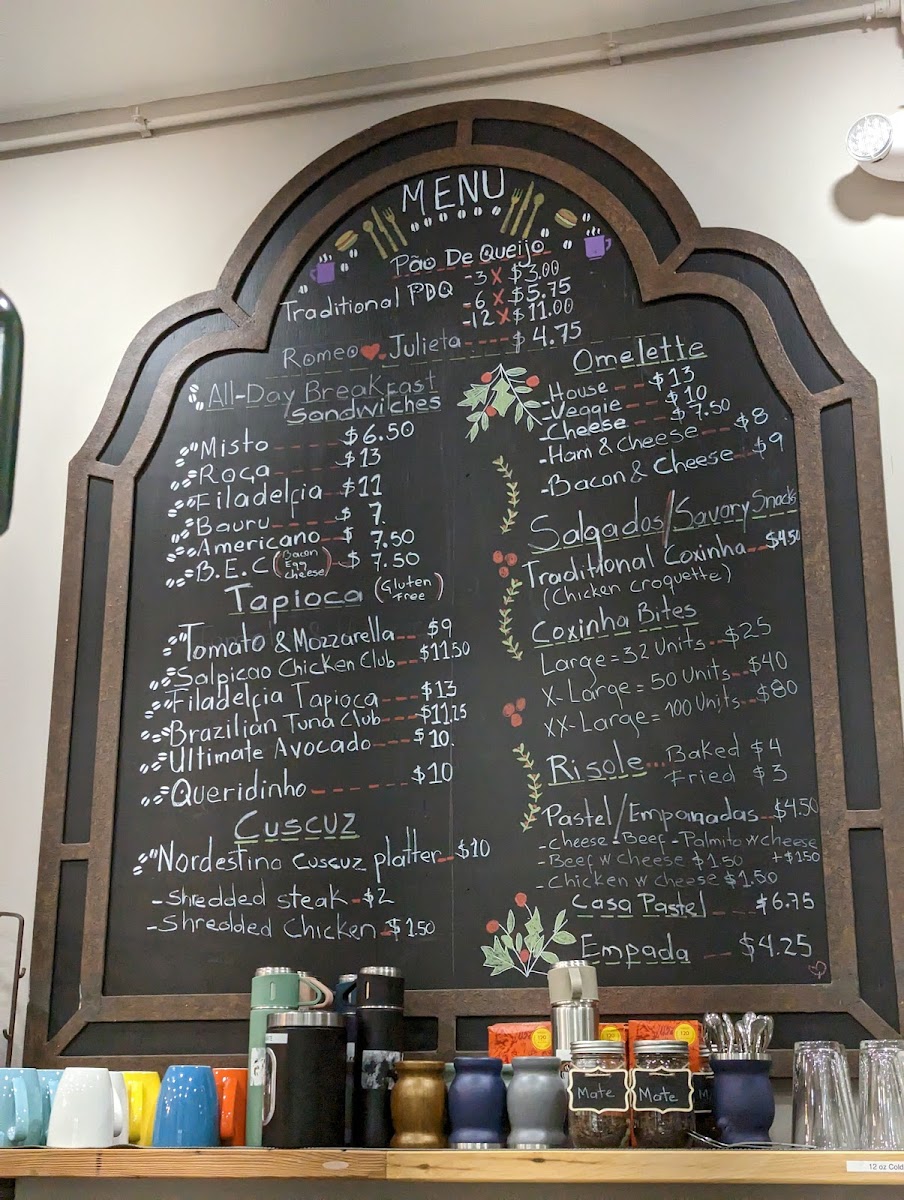 MENU
Pão De Queijo
Traditional PDQ -3 x $3.00
-6 x $5.75
-12 x $11.00
Romeo ❤ Julieta ----- $ 4.75
All-Day Breakfast
Sandwiches
Misto $6.50
Roça $13
Filadelfia $11
Bauru $ 7.
Americano $ 7.50
B.E.C (Bacon Egg cheese) $ 7.50
Tapioca (Gluten Free)
Tomato & Mozzarella $9
Salpicao Chicken Club $11.50
Filadelfia Tapioca $13
Brazilian Tuna Club $11.25
Ultimate Avocado $10.
Queridinho $10
Cuscuz
Nordestino cuscuz platter $10
-Shredded steak - $2
-Shredded Chicken - $1.50
Omelette
-House -- $13
-Veggie -- $10
-Cheese -- $7.50
-Ham & Cheese -- $8
-Bacon & Cheese -- $9
Salgados/Savory Snacks
Traditional Coxinha -- $4.50
(Chicken croquette)
Coxinha Bites
Large = 32 Units -- $25
X-Large = 50 Units -- $40
XX-Large = 100 Units -- $80
Risole ... Baked $4
Fried $3
Pastel/Empanadas -- $4.50
-Cheese - Beef - Palmito w cheese
-Beef w cheese $1.50 +$1.50
-Chicken w cheese $1.50
Casa Pastel ---- $6.75
Empada -- $4.25
Mate
Mate
12 oz Cold